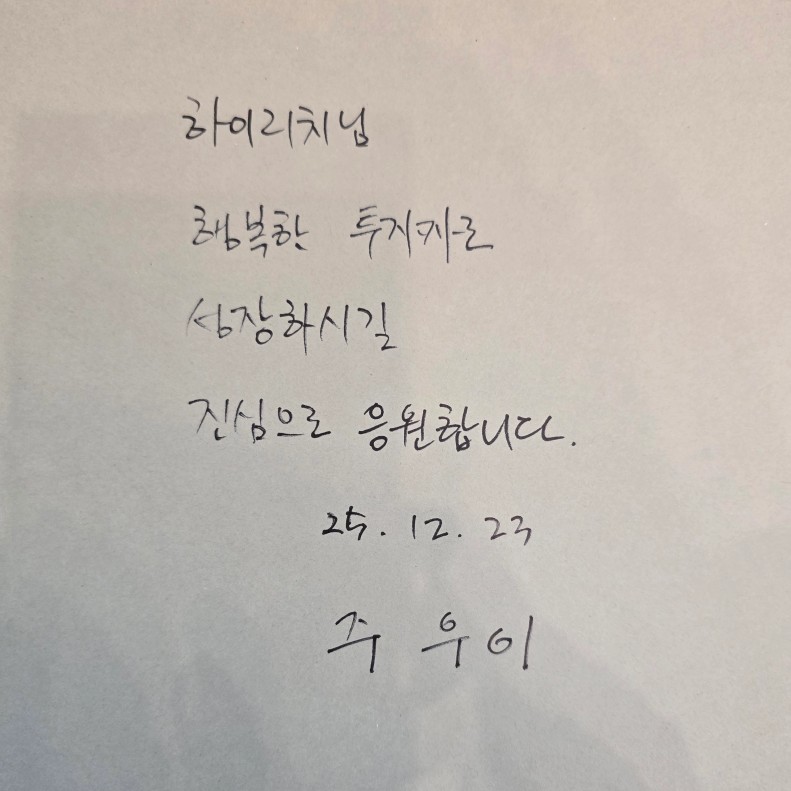 하이리치님
행복한 투자자로
성장하시길
진심으로 응원합니다.
25. 12. 23
주 우 이